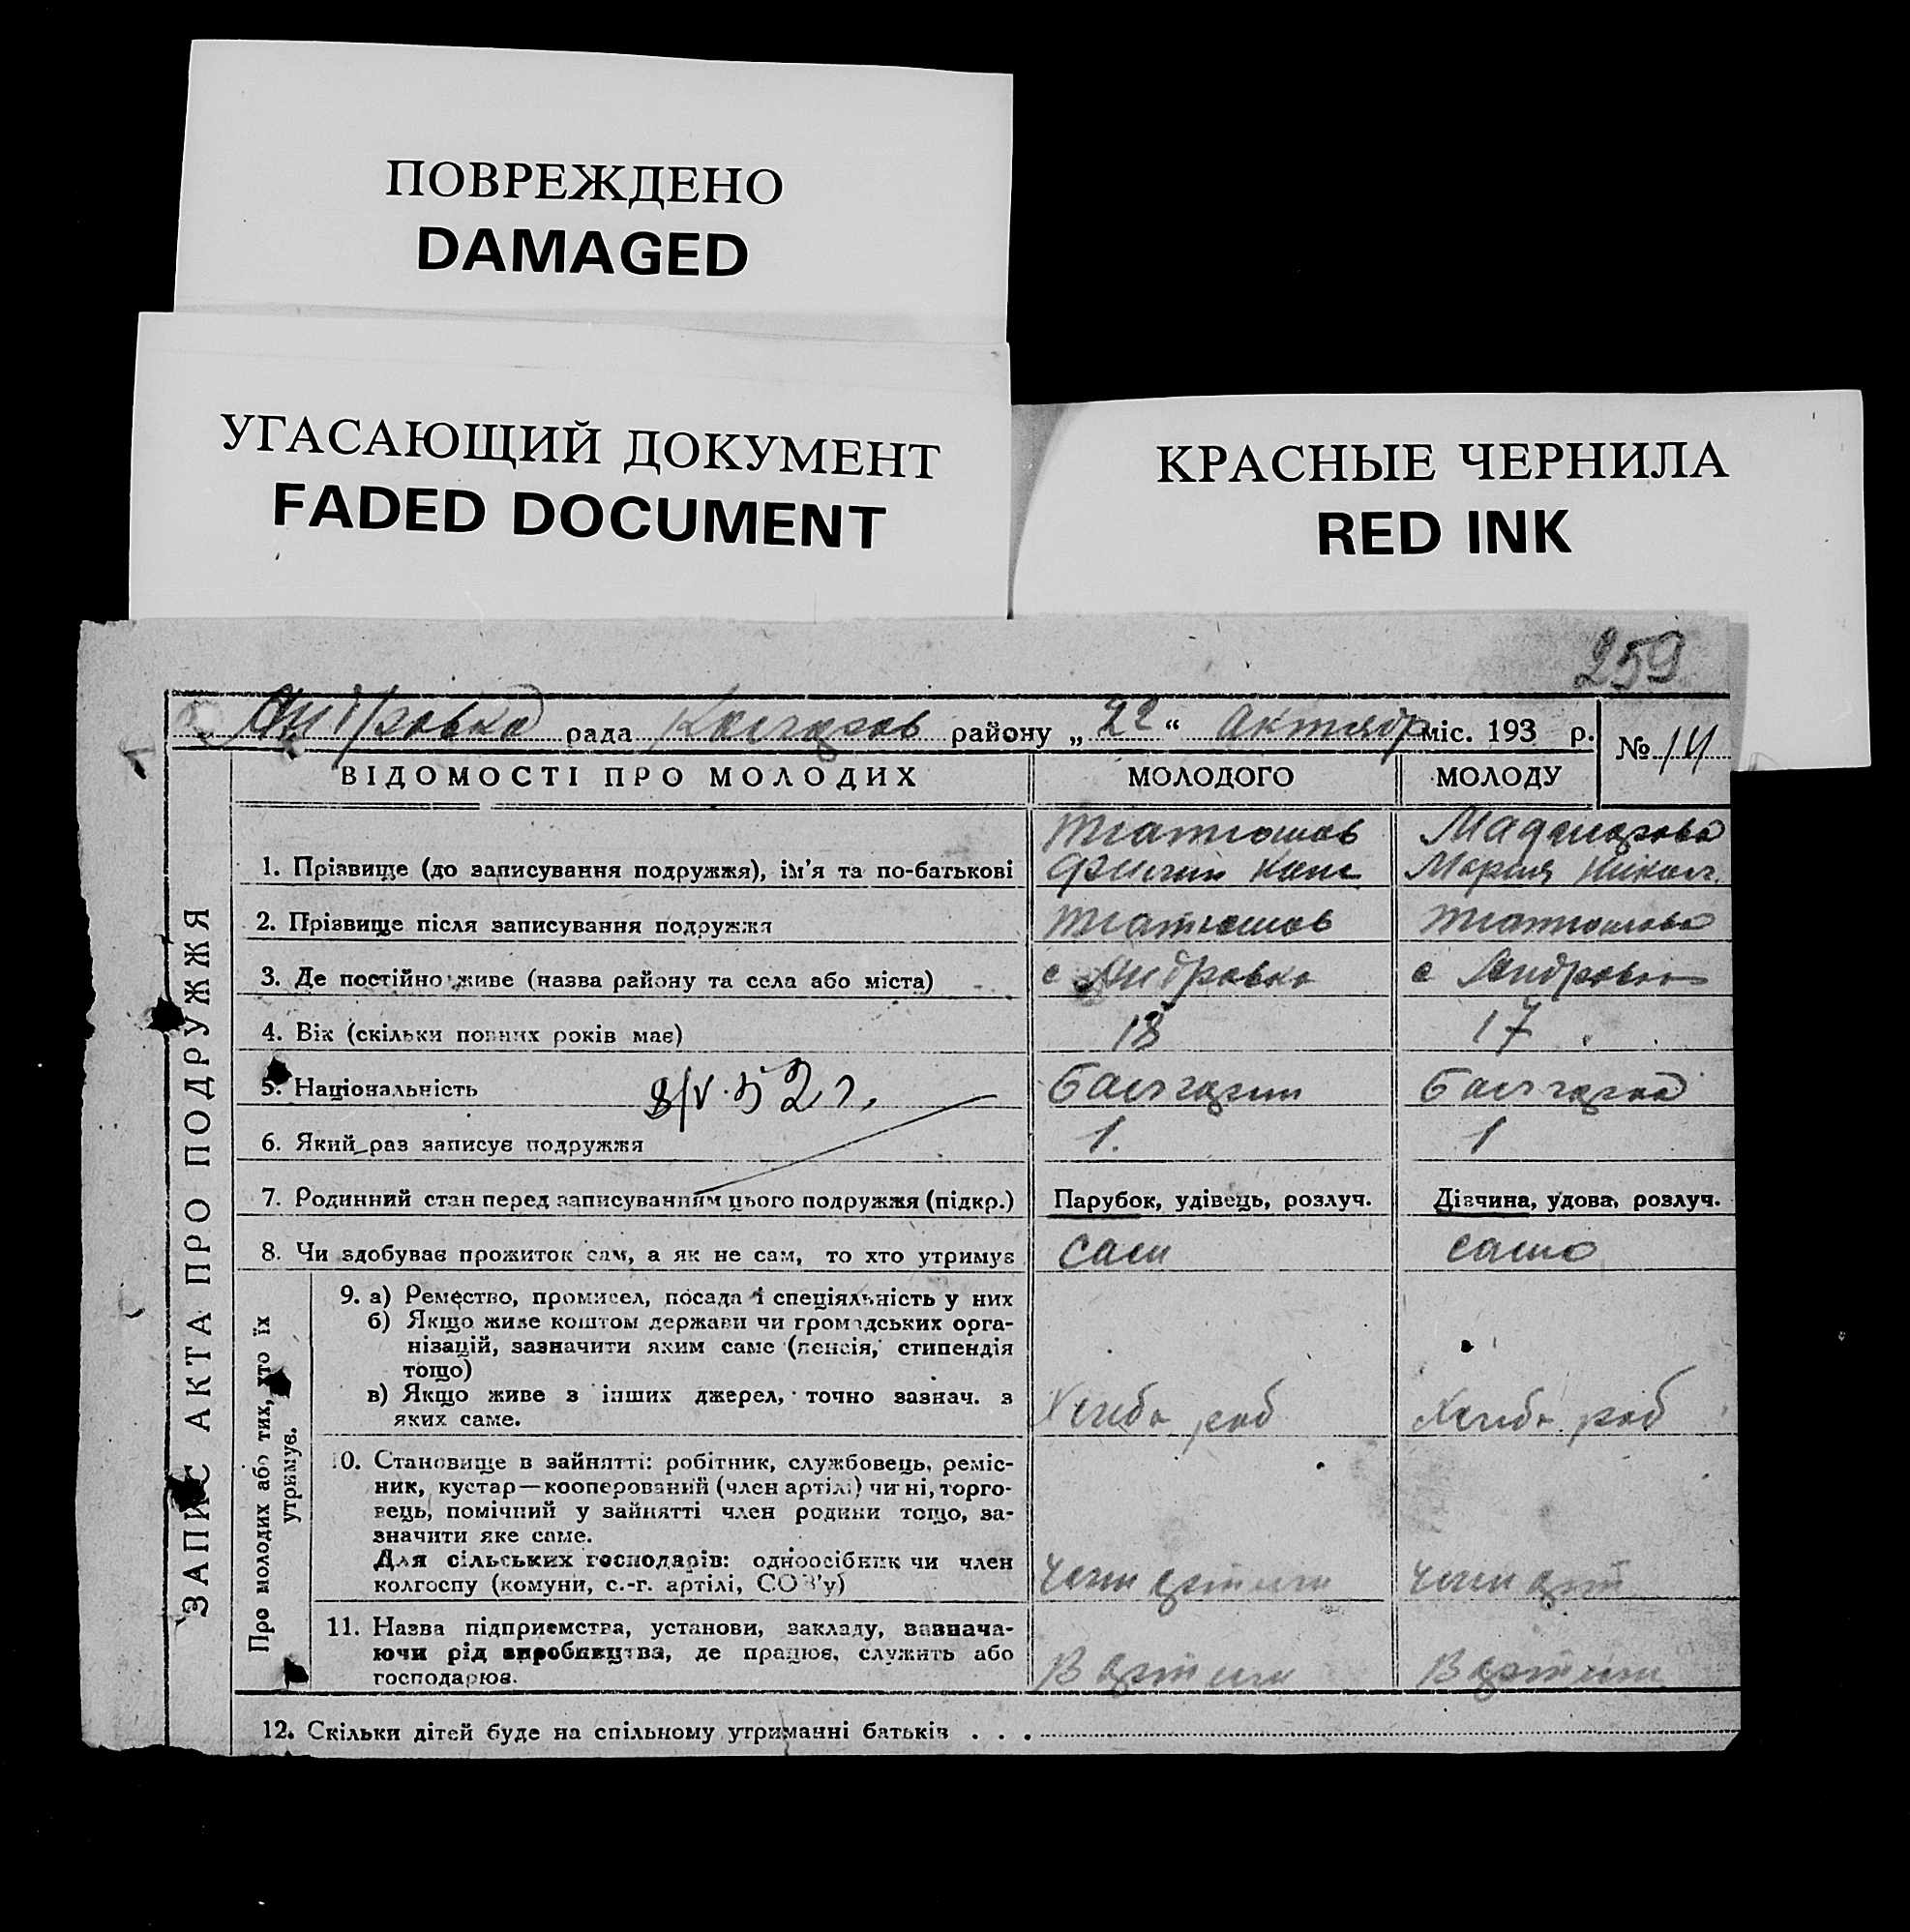 ПОВРЕЖДЕНО
DAMAGED
УГАСАЮЩИЙ ДОКУМЕНТ
FADED DOCUMENT
КРАСНЫЕ ЧЕРНИЛА
RED INK
259
рада району „ 22 “ Октябр міс. 193 р.
№ 14
ВІДОМОСТІ ПРО МОЛОДИХ МОЛОДОГО МОЛОДУ
ЗАПИС АКТА ПРО ПОДРУЖЖЯ
1. Прізвище (до записування подружжя), ім'я та по-батькові
Мария Никол.
2. Прізвище після записування подружжя
3. Де постійно живе (назва району та села або міста) с с
4. Вік (скільки повних років має) 18 17
5. Національність Балгарин Балгарка
8/V. 52 г.
6. Який раз записує подружжя 1. 1
7. Родинний стан перед записуванням цього подружжя (підкр.) Парубок, удівець, розлуч. Дівчина, удова, розлуч.
8. Чи здобуває прожиток сам, а як не сам, то хто утримує сам само
Про молодих або тих, хто їх утримує.
9. а) Ремество, промисел, посада і спеціяльність у них
б) Якщо живе коштом держави чи громадських орга-
нізацій, зазначити яким саме (пенсія, стипендія
тощо)
в) Якщо живе з інших джерел, точно зазнач. з
яких саме.
Хлебо роб Хлебо роб
10. Становище в зайнятті: робітник, службовець, реміс-
ник, кустар—кооперований (член артілі) чи ні, торго-
вець, помічний у зайнятті член родини тощо, за-
значити яке саме.
Для сільських господарів: одноосібник чи член
колгоспу (комуни, с.-г. артілі, СОЗ'у)
член артели член арт
11. Назва підприємства, установи, закладу, зазнача-
ючи рід виробництва, де працює, служить або
господарює.
В артели В артели
12. Скільки дітей буде на спільному утриманні батьків . . .